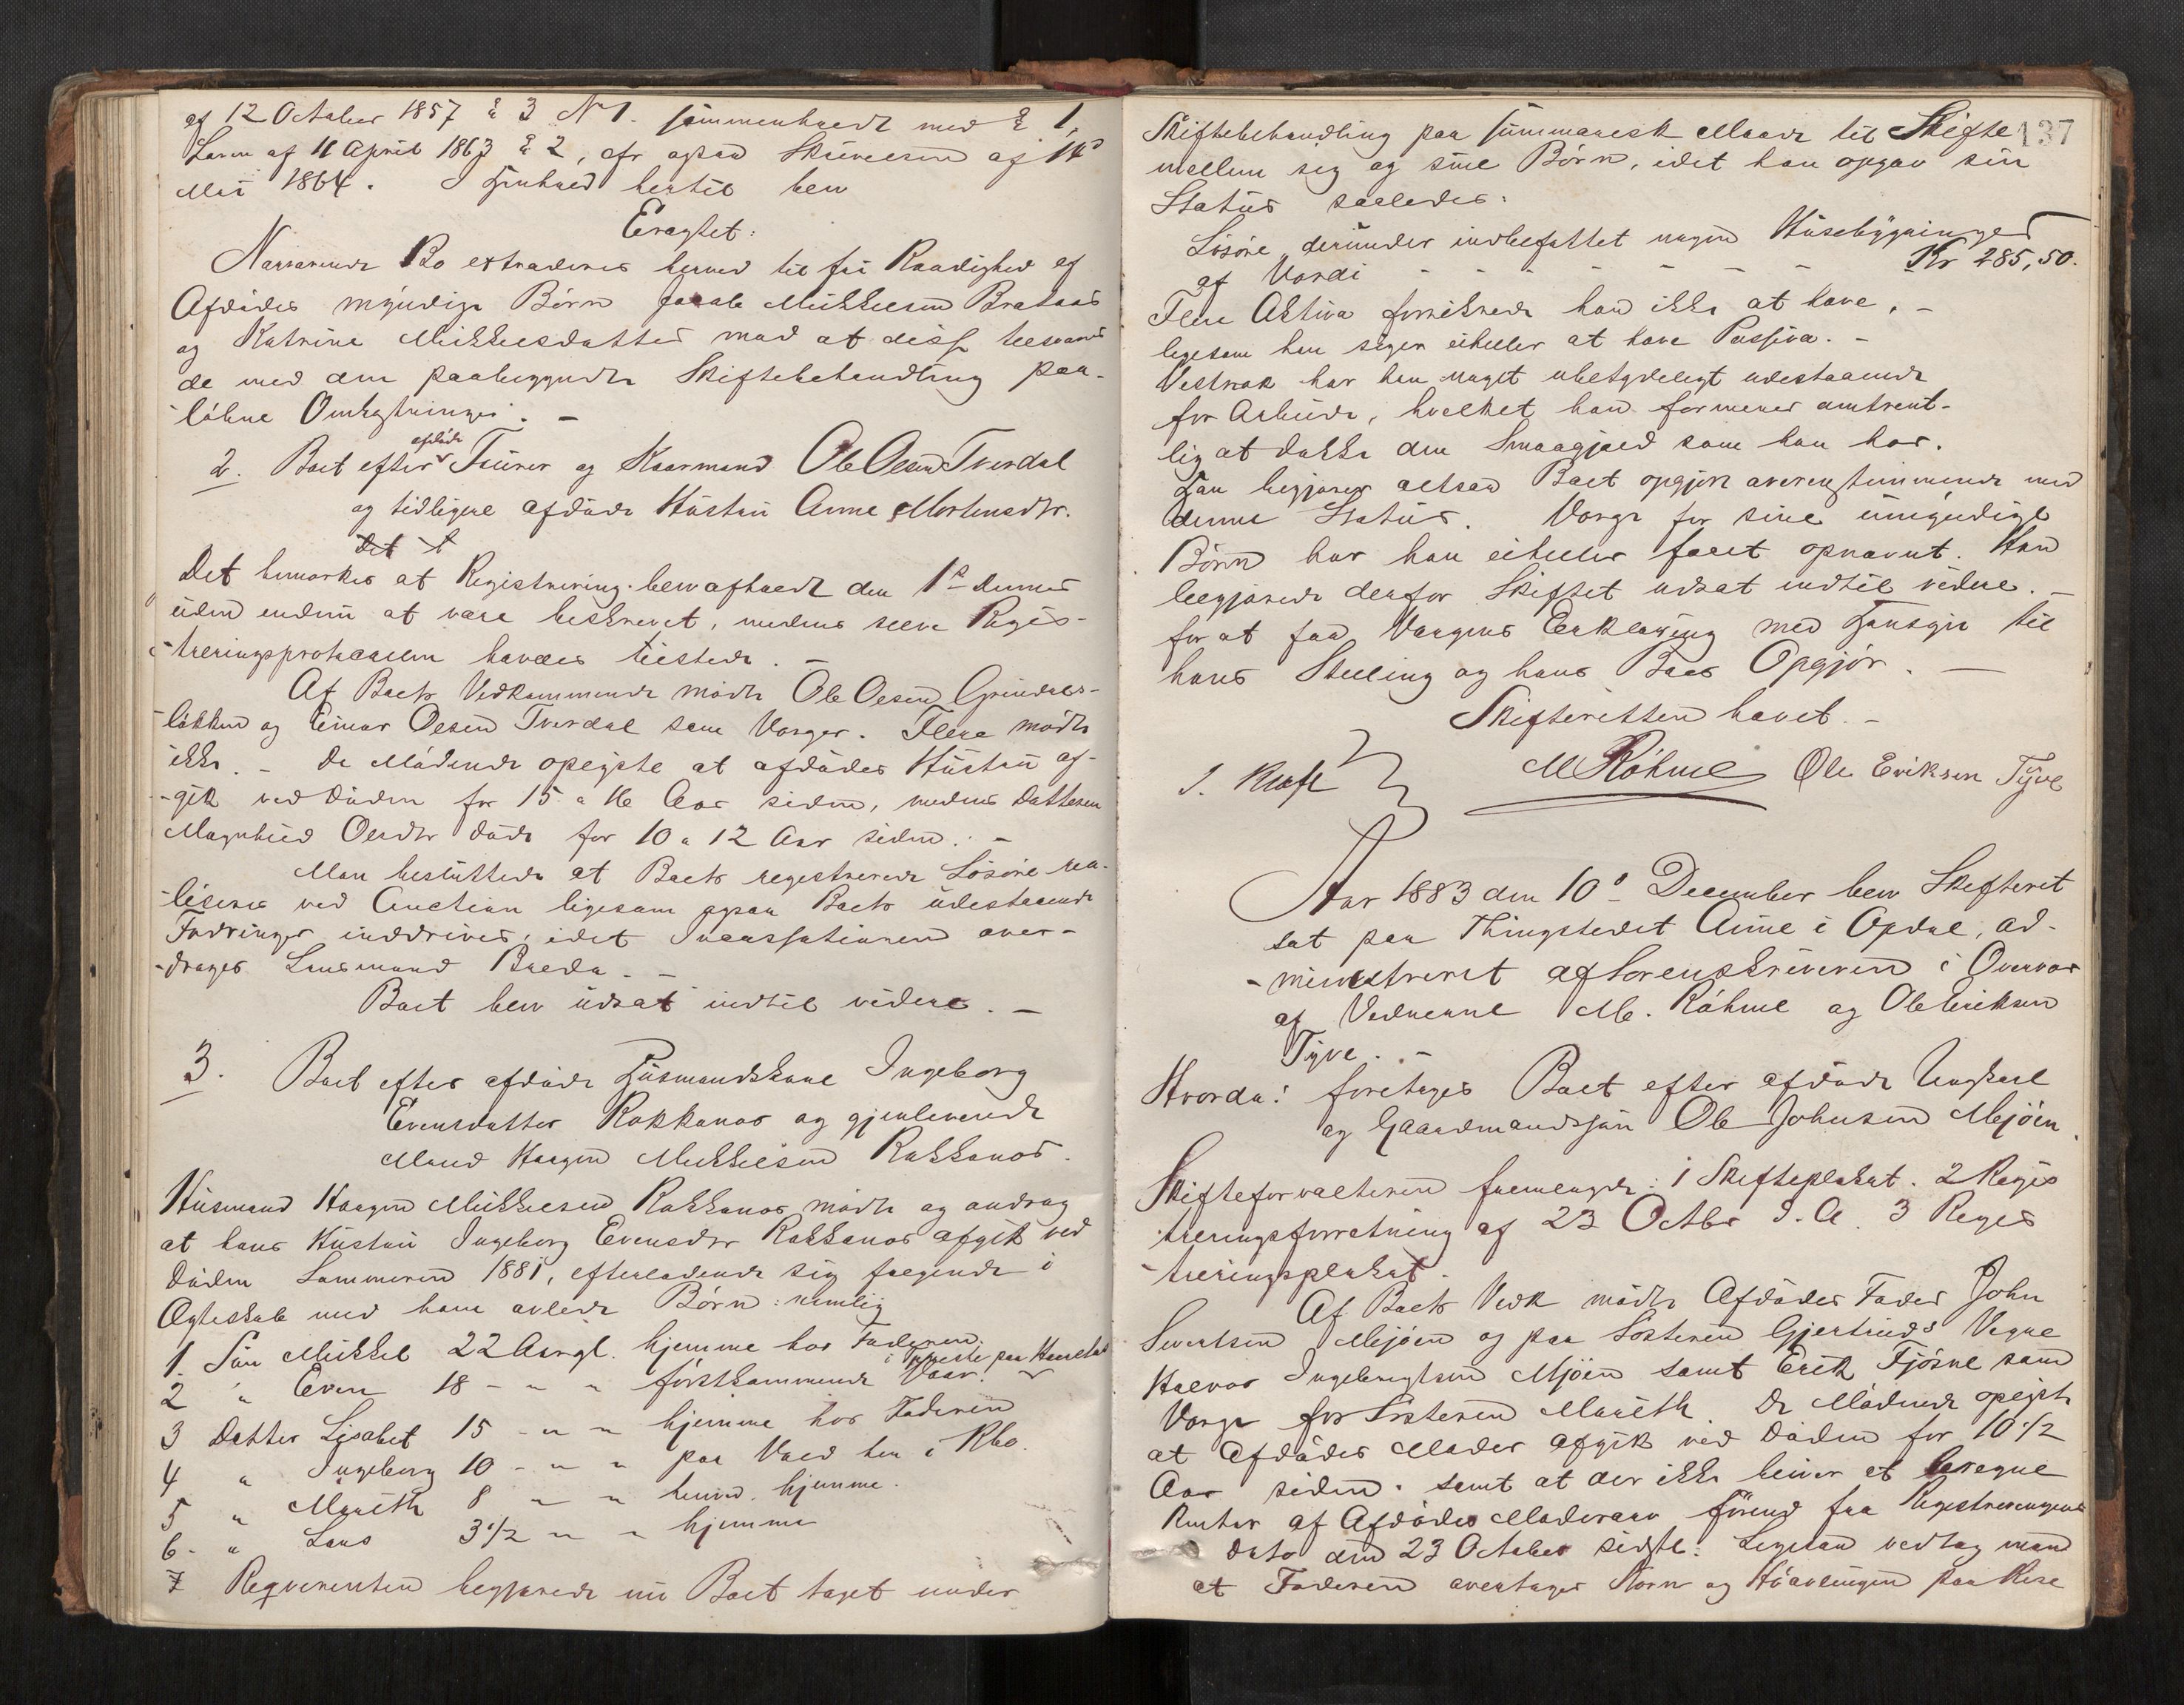 af 12 October 1857 § 3 No 1. sammenholdt med § 1,
Loven af 11 April 1863 § 2, cfr ogsaa Skrivelsen af 14de
Mai 1864. I Henhold hertil blev
Eragtet:
Nærværende Bo extraderes herved til fri Raadighed af
Afdødes myndige Børn Jacob Mikkelsen Brataas
og Katrine Mikkelsdatter mod at disse tilsvarer
de med den paabegyndte Skiftebehandling paa-
-løbne Omkostninger. -
2. Boet efter afdøde Enkemand og Kaarmand Ole Olsen Tverdal
og tidligere afdøde Hustru Anne Mortensdtr.
Det bemærkes at Registrering blev afholdt den 1ste dennes
uden endnu at være beskrevet, medens selve Regis-
-treringsprotocollen havdes tilstede. -
Af Boets Vedkommende mødte Ole Olsen Grindals-
-løkken og Einar Olsen Tverdal som Verger. Flere mødte
ikke. - De Mødende oplyste at afdødes Hustru af-
-gik ved Døden for 15 a 16 Aar siden, medens Datteren
Magnhild Olsdtr døde for 10 a 12 Aar siden. -
Man besluttede at Boets registrerede Løsøre rea-
-liseres ved Auction ligesom ogsaa Boets udestaaende
Fordringer inddrives, idet Incassationen over-
-drages Lensmand Bredo. -
Boet blev udsat indtil videre. -
3. Boet efter afdøde Husmandskone Ingeborg
Evensdatter Rokkonos og gjenlevende
Mand Haagen Mikkelsen Rokkonos.
Husmand Haagen Mikkelsen Rokkonos mødte og androg
at hans Hustru Ingeborg Evensdtr Rokkonos afgik ved
Døden Sommeren 1881, efterladende sig følgende i
Ægteskab med ham avlede Børn: nemlig
1. Søn Mikkel 22 Aargl. hjemme hos Faderen.
2 " Even 18 - " - " førstkommende Vaar. i Tjeneste paa
3 Datter Lisabet 15 - " - " hjemme hos Faderen
4 " Ingeborg 10 - " - " paa Vold her i Rbo.
5 " Marith 8 " " hjemme.
6. " Lars 3 1/2 " " hjemme
7 Reqvirenten begjærede nu Boet taget under
137
Skiftebehandling paa summarisk Maade til Skifte
mellem sig og sine Børn, idet han opgav sin
Status saaledes:
Løsøre, derunder indbefattet nogen Husebygninger
af Værdi - - - - - - - Kr 285,50.
Flere Aktiva forsikrede han ikke at have, -
ligesom han siger eiheller at have Passiva. -
Vistnok har han noget ubetydeligt udestaaende
for Arbeide, hvilket han formener omtrent-
lig at dække den Smaagjæld som han har.
Han begjærer altsaa Boet opgjort overensstemmende med
denne Status. Verge for sine umyndige
Børn har han eiheller faaet opnævnt. Han
begjærede derfor Skiftet udsat indtil videre. -
for at faa Vergens Erklæring med Hensyn til
hans Stilling og hans Boes Opgjør. -
Skifteretten hævet. -
M Röhme Ole Eriksen Tyve
J. Kraft
Aar 1883 den 10de December blev Skifteret
sat paa Thingstedet Aune i Opdal, ad-
-ministreret af Sorenskriveren i Overvær
af Vidnerne M. Röhme og Ole Eriksen
Tyve. -
Hvorda: foretages Boet efter afdøde Ungkarl
og Gaardmandssøn Ole Johnsen Mjøen.
Skifteforvalteren fremlagde: 1 Skifteplakat. 2 Regis
-treringsforretning af 23 Octbr d. A. 3 Regis
-treringsplakat.
Af Boets Vedk mødte Afdødes Fader John
Sivertsen Mjøen og paa Søsteren Gjertruds Vegne
Halvor Ingebrigtsen Mjøen samt Erik Fjøsne som
Verge for Søsteren Marith. De Mødende oplyste
at Afdødes Moder afgik ved Døden for 10 1/2
Aar siden. samt at der ikke bliver at beregne
Renter af Afdødes Moderarv førend fra Registreringens
Dato den 23 October sidste. Ligesaa vedtog man
at Faderen overtager Korn og Høavlingen paa Rise